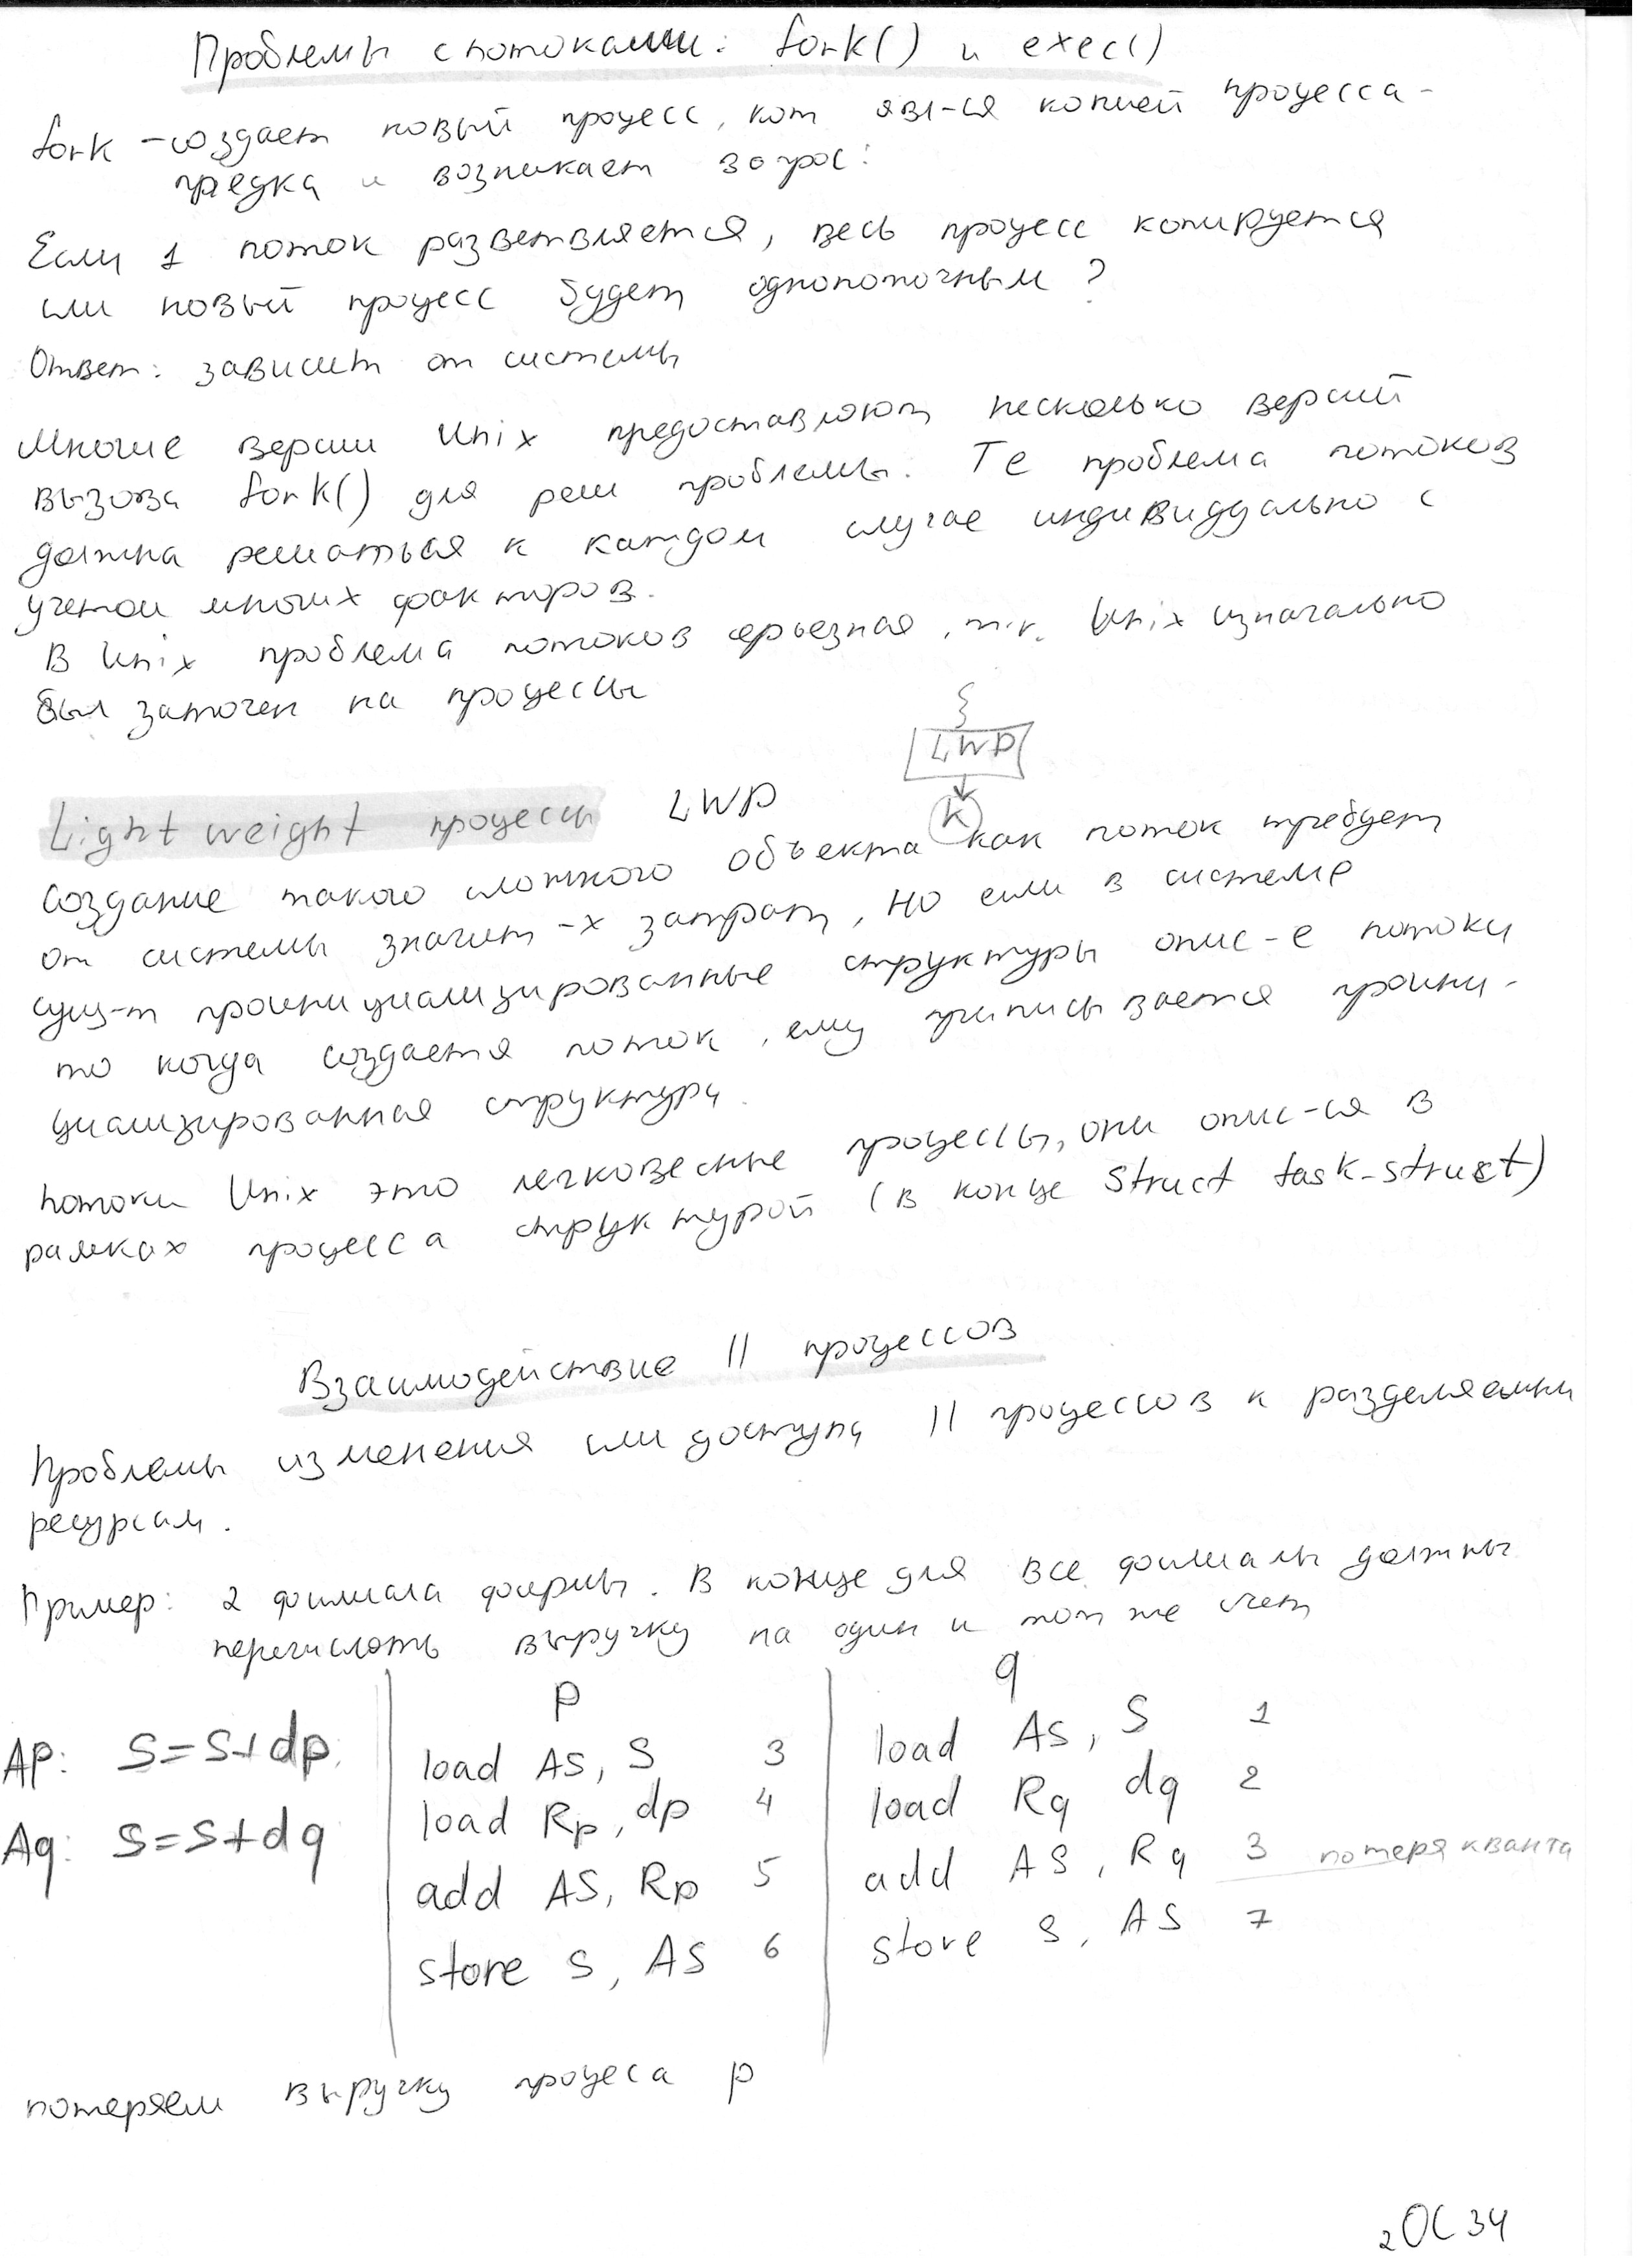 Проблемы с потоками: fork() и exec()
fork – создает новый процесс, кот явл-ся копией процесса-
предка и возникает вопрос:
Если 1 поток разветвляется, весь процесс копируется
или новый процесс будет однопоточным?
Ответ: зависит от системы
Многие версии Unix предоставляют несколько версий
вызова fork() для реш проблемы. Те проблема потоков
должна решаться к каждом случае индивидуально с
учетом многих факторов.
В Unix проблема потоков серьезная, т.к. Unix изначально
был заточен на процессы
LWP
K
Light weight процессы LWP
Создание такого сложного объекта как поток требует
от системы значит-х затрат, но если в системе
сущ-т проинициализированные структуры опис-е потоки
то когда создается поток, ему приписывается проини-
циализированная структура.
Потоки Unix это легковесные процессы, они опис-ся в
рамках процесса структурой (в конце struct task-struct)
Взаимодействие || процессов
Проблемы изменения или доступа || процессов к разделяемым
ресурсам.
Пример: 2 филиала фирмы. В конце дня все филиалы должны
перечислять выручку на один и тот же счет
p q
Ap: S=S+dp
Aq: S=S+dq
load AS, S 3 load AS, S 1
load Rp, dp 4 load Rq dq 2
add AS, Rp 5 add AS, Rq 3 потеря кванта
store S, AS 6 store S, AS 7
потеряем выручку процеса p
2 ОС 34